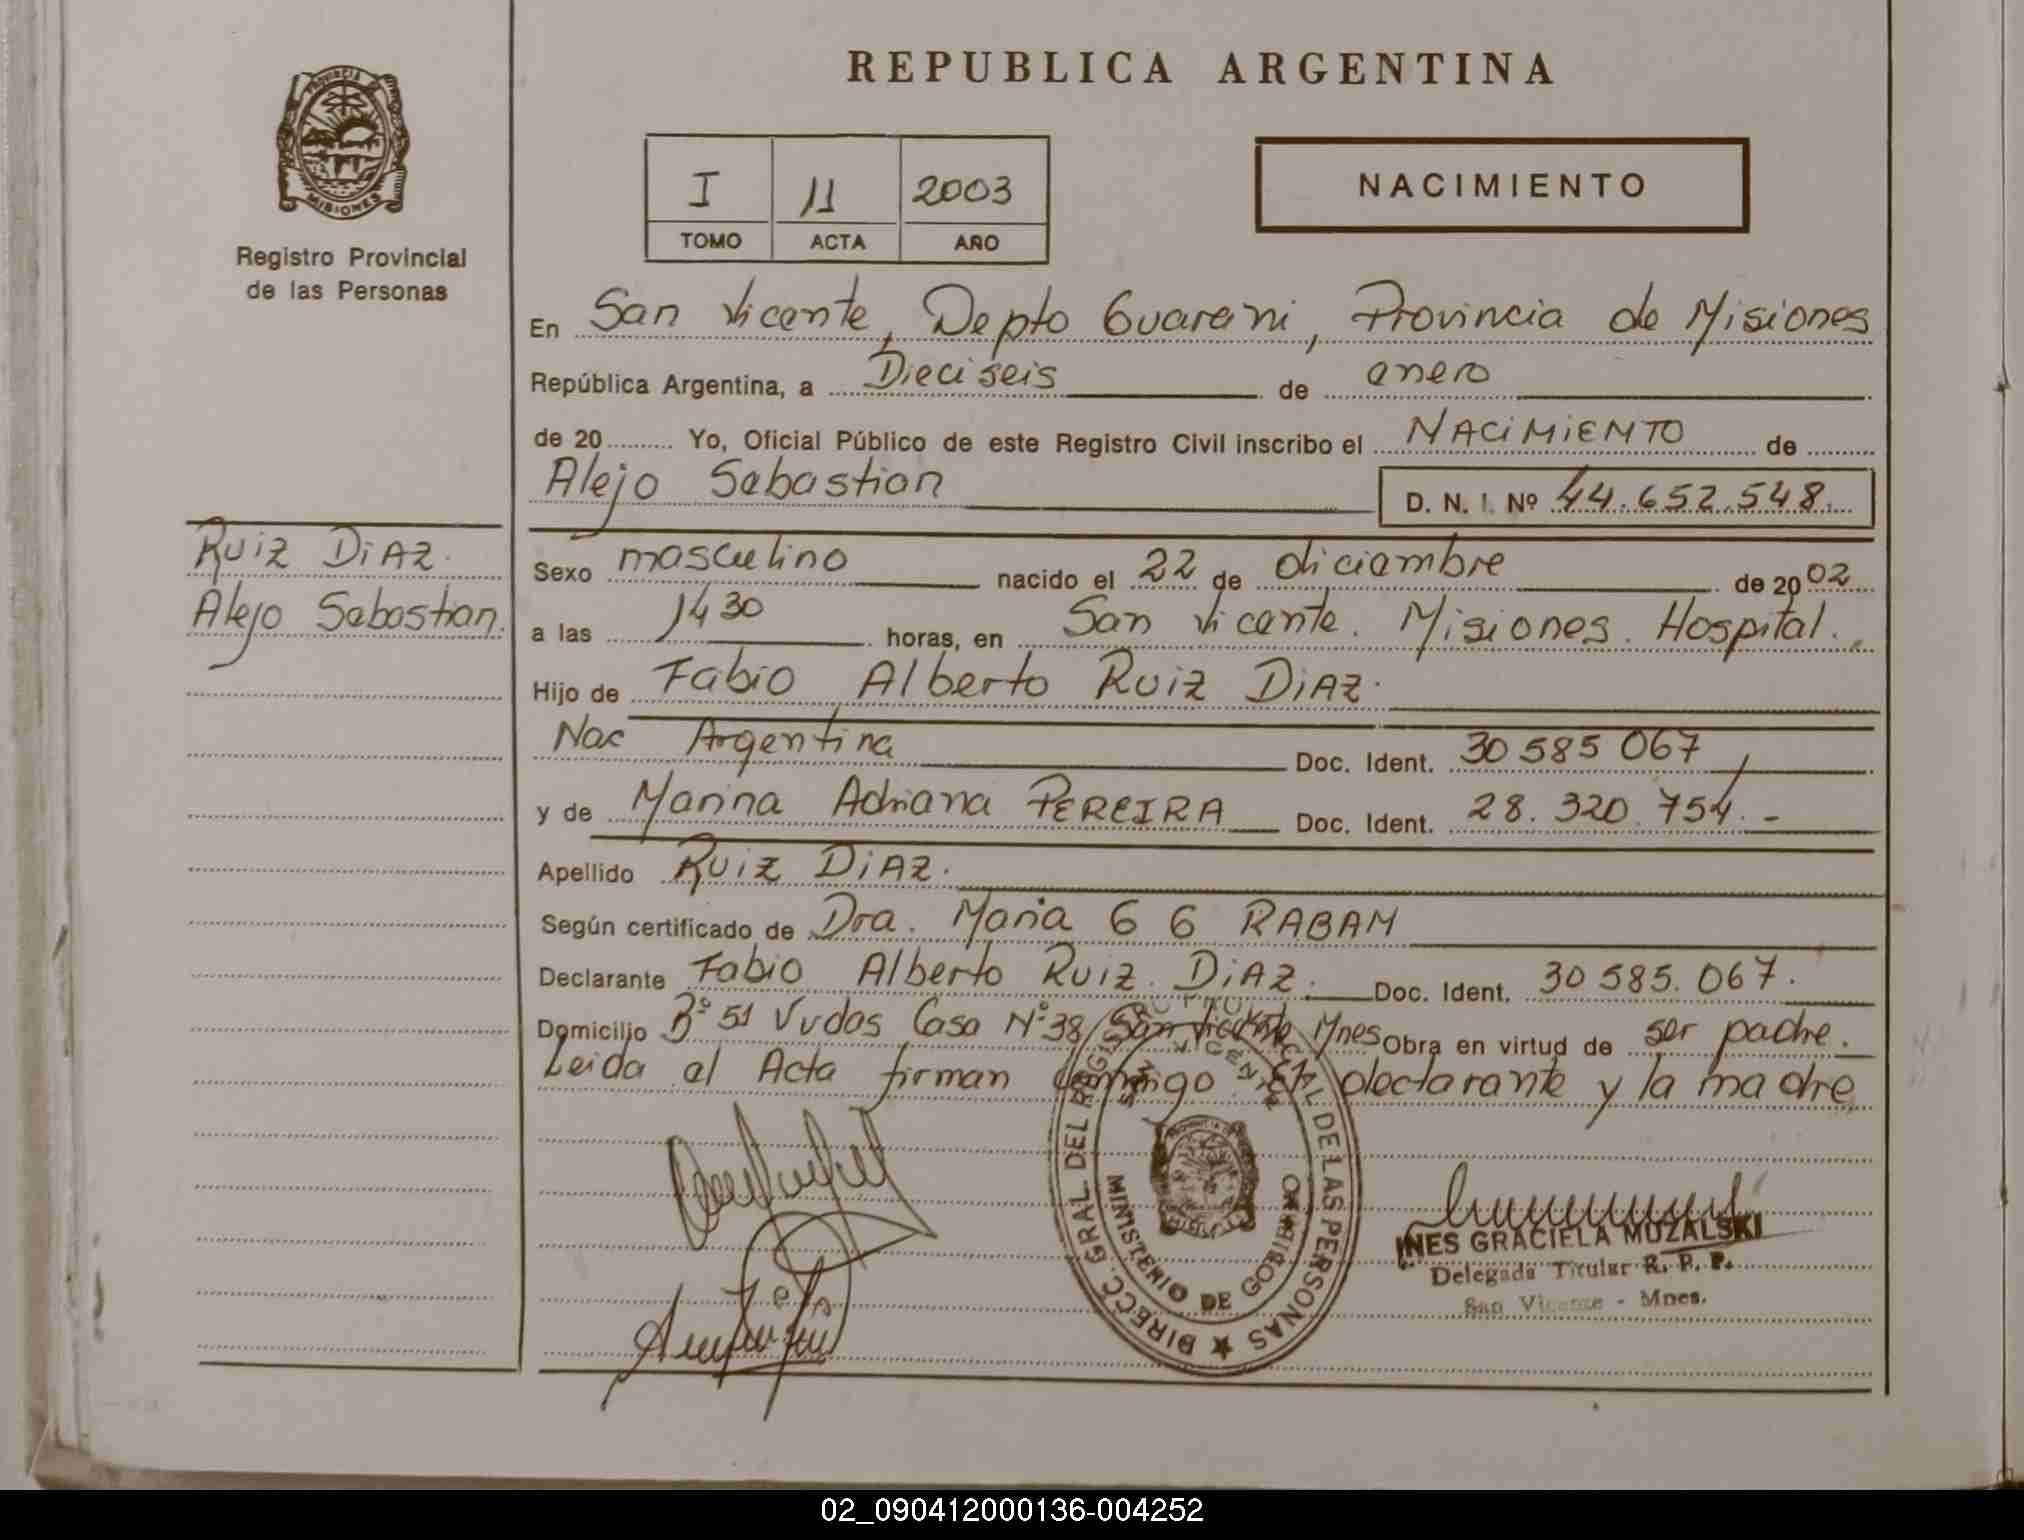 REPUBLICA ARGENTINA
PROVINCIA
MISIONES
Registro Provincial
de las Personas
I 11 2003
TOMO ACTA AÑO
NACIMIENTO
En San Vicente, Depto Guarani, Provincia de Misiones
República Argentina, a Dieciseis de enero
de 20 Yo, Oficial Público de este Registro Civil inscribo el NACIMIENTO de
Alejo Sebastian D. N. I. Nº 44.652.548.
Ruiz DiAZ.
Alejo Sebastian.
Sexo masculino nacido el 22 de diciembre de 20 02
a las 14 30 horas, en San Vicente. Misiones. Hospital.
Hijo de Fabio Alberto Ruiz DiAZ.
Nac Argentina Doc. Ident. 30 585 067
y de Marina Adriana PEREIRA Doc. Ident. 28. 320. 754. -
Apellido Ruiz DiAZ.
Según certificado de Dra. Maria G G RABAM
Declarante Fabio Alberto Ruiz. DiAZ. Doc. Ident. 30 585. 067.
Domicilio Bº 51 Vvdas Casa Nº 38 San Vicente Mnes Obra en virtud de ser padre.
Leida el Acta firman conmigo El declarante y la madre
DIRECC. GRAL DEL REGISTRO PROVINCIAL DE LAS PERSONAS
SAN VICENTE
MINISTERIO DE GOBIERNO
INES GRACIELA MUZALSKI
Delegada Titular R. P. P.
San Vicente - Mnes.
02_090412000136-004252